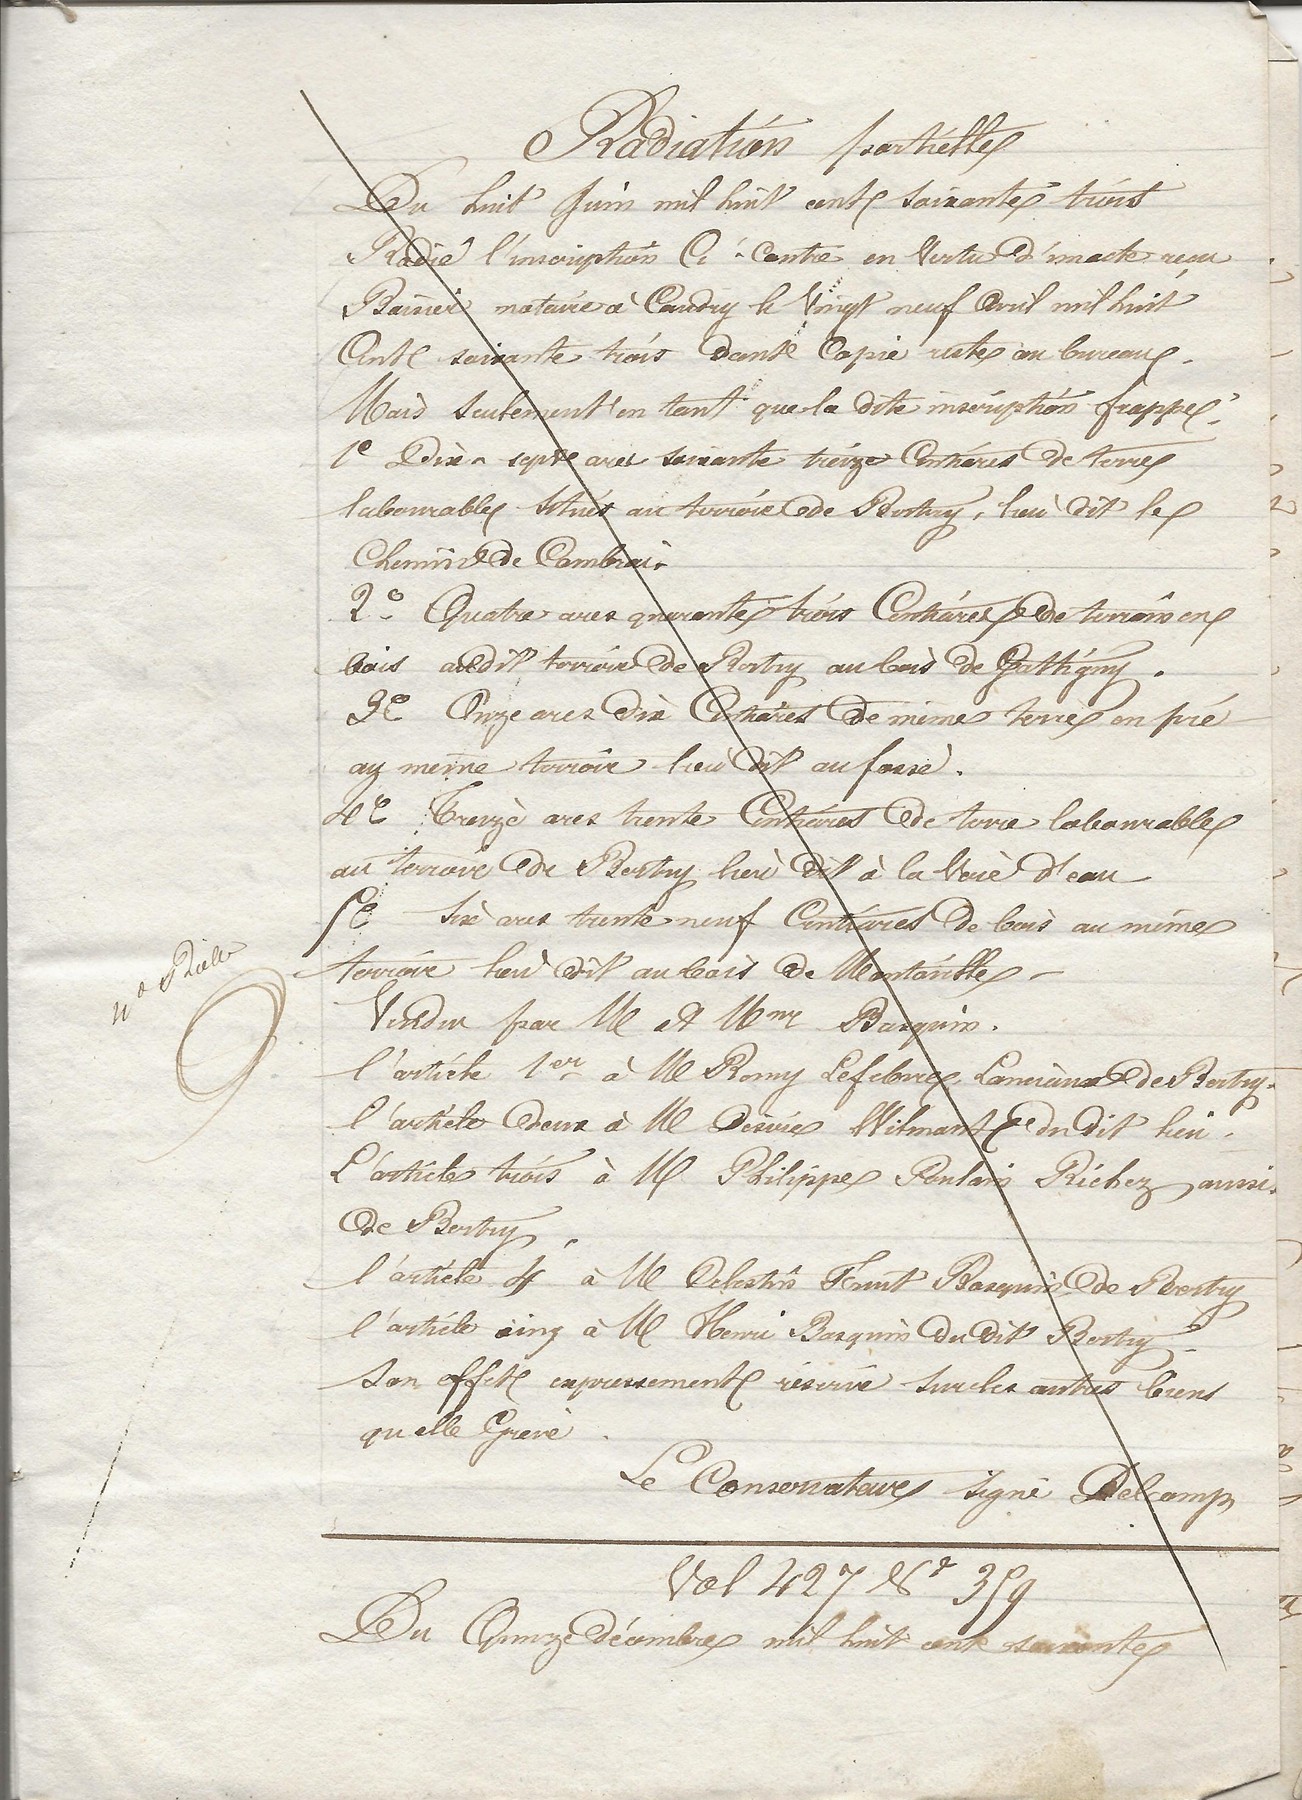 Radiation partielle
Du huit Juin mil huit cent soixante trois
Radié l'inscription Ci-contre en Vertu d'un acte reçu
notaire à Caudry le Vingt neuf Avril mil huit
Cent soixante trois dont Copie reste au bureau.
Mais seulement en tant que la dite inscription frappe.
1° Dix-sept ares soixante treize Centiares de terre
labourable situés au terroir de Bertry, lieu dit le
Chemin de Cambrai.
2° Quatre ares quarante trois Centiares de terrain en
bois audit terroir de Bertry au bois de Gattigny.
3° Onze ares dix Centiares de meme terre en pré
au meme terroir lieu dit au fossé.
4° Treize ares trente Centiares de terre labourable
au terroir de Bertry lieu dit à la Voie d'eau
5° Six ares trente neuf Centiares de bois au même
terroir lieu dit au bois de
Vendu par M et Mme Basquin.
l'article 1er à M Romy Lefebvre Lanciaux de Bertry.
l'article deux à M Désiré Wilmant du dit lieu.
L'article trois à M Philippe Poulain Richez aussi
de Bertry,
l'article 4 à M Celestin Basquin de Bertry
l'article cinq à M Henri Basquin du dit Bertry.
Son effet expressement réservé sur les autres biens
qu'elle Grève.
Le Conservateur signé Delcamp
Vol 427 N° 359
Du Quinze décembre mil huit cent soixante